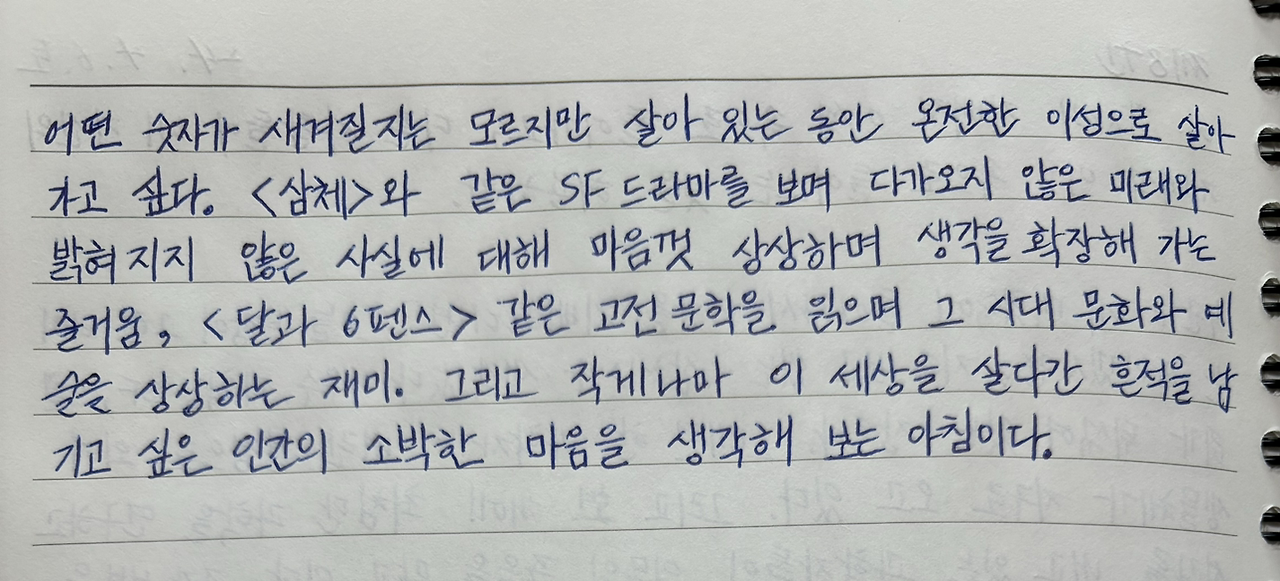 어떤 숫자가 새겨질지는 모르지만 살아 있는 동안 온전한 이성으로 살아
가고 싶다. <삼체>와 같은 SF 드라마를 보며 다가오지 않은 미래와
밝혀지지 않은 사실에 대해 마음껏 상상하며 생각을 확장해 가는
즐거움, <달과 6펜스> 같은 고전 문학을 읽으며 그 시대 문화와 예
술을 상상하는 재미. 그리고 작게나마 이 세상을 살다간 흔적을 남
기고 싶은 인간의 소박한 마음을 생각해 보는 아침이다.